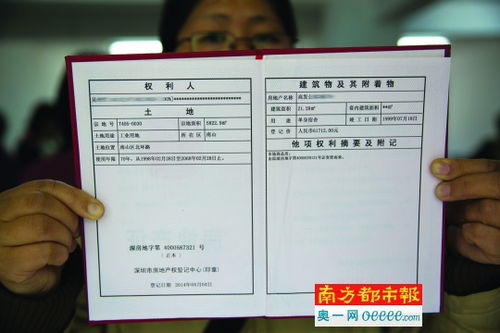 权利人
土地
宗地号 T405-0030 宗地面积 5822.5m²
土地用途 工业用地 所在区 南山
土地位置 南山区北环路
使用年限 70年，从1998年02月28日至2068年02月28日止。
深房地字第 4000587321 号
(正本)
深圳市房地产权登记中心(印章)
登记日期
建筑物及其附着物
房地产名称
建筑面积 21.29m² 套内建筑面积 **m²
用途 单身宿舍 竣工日期 1999年07月18日
登记价 人民币61712.00元
他项权利摘要及附记
南方都市報
奥一网 oeeee.com